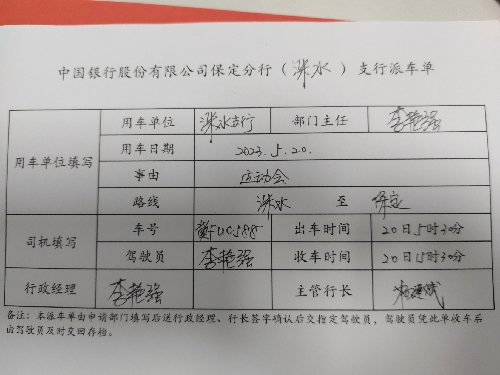 中国银行股份有限公司保定分行（涞水）支行派车单
用车单位填写
用车单位 涞水支行 部门主任 李艳强
用车日期 2023.5.20.
事由 运动会
路线 涞水 至 保定
司机填写
车号 出车时间 20日5时30分
驾驶员 李艳强 收车时间 20日15时30分
行政经理 李艳强 主管行长
备注：本派车单由申请部门填写后送行政经理、行长签字确认后交指定驾驶员，驾驶员凭此单收车后
由驾驶员及时交回存档。